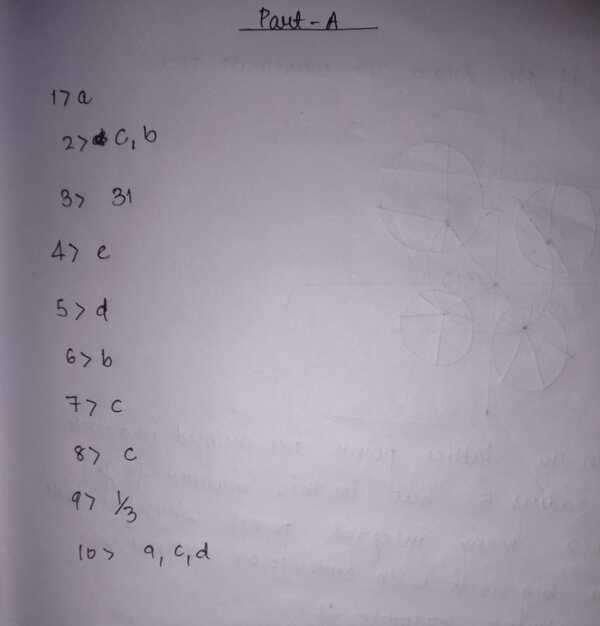 Part - A
1> a
2> c, b
3> 31
4> e
5> d
6> b
7> c
8> c
9> 1/3
10> a, c, d